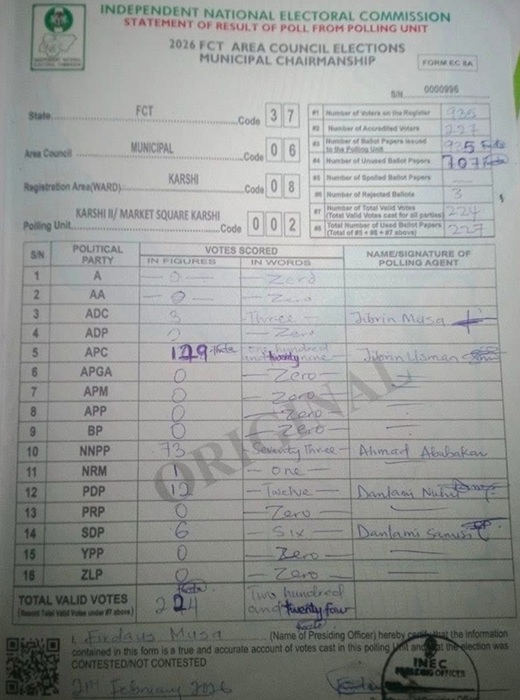 INDEPENDENT NATIONAL ELECTORAL COMMISSION
STATEMENT OF RESULT OF POLL FROM POLLING UNIT
2026 FCT AREA COUNCIL ELECTIONS
MUNICIPAL CHAIRMANSHIP
FORM EC 8A
S/N 0000996
State FCT Code 3 7
Area Council MUNICIPAL Code 0 6
Registration Area(WARD) KARSHI Code 0 8
Polling Unit KARSHI II/ MARKET SQUARE KARSHI Code 0 0 2
#1 Number of Voters on the Register 935
#2 Number of Accredited Voters 227
#3 Number of Ballot Papers Issued to the Polling Unit 935
#4 Number of Unused Ballot Papers 707
#5 Number of Spoiled Ballot Papers —
#6 Number of Rejected Ballots 3
#7 Number of Total Valid Votes (Total Valid Votes cast for all parties) 224
#8 Total Number of Used Ballot Papers (Total of #5 + #6 + #7 above) 227
S/N POLITICAL PARTY VOTES SCORED NAME/SIGNATURE OF POLLING AGENT
IN FIGURES IN WORDS
1 A 0 Zero
2 AA 0 Zero
3 ADC 3 Three Jibrin Musa
4 ADP 0 Zero
5 APC 129 one hundred and twenty nine Jibrin Usman
6 APGA 0 Zero
7 APM 0 Zero
8 APP 0 Zero
9 BP 0 Zero
10 NNPP 73 Seventy Three Ahmad Ababakar
11 NRM 1 one
12 PDP 12 Twelve Danlami
13 PRP 0 Zero
14 SDP 6 Six Danlami Sanusi
15 YPP 0 Zero
16 ZLP 0 Zero
ORIGINAL
TOTAL VALID VOTES 224 Two hundred and twenty four
(Record Total Valid Votes under #7 above)
I, Firdaus Musa (Name of Presiding Officer) hereby certify that the information
contained in this form is a true and accurate account of votes cast in this polling Unit and that the election was
CONTESTED/NOT CONTESTED
INEC
PRESIDING OFFICER
21st February 2026